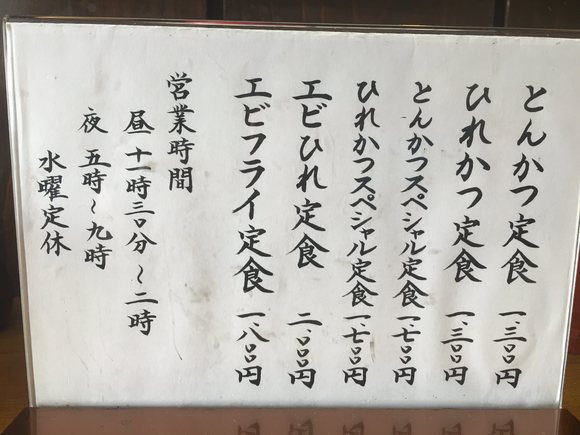 とんかつ定食 一、三〇〇円
ひれかつ定食 一、三〇〇円
とんかつスペシャル定食 一、七〇〇円
ひれかつスペシャル定食 一、七〇〇円
エビひれ定食 二、〇〇〇円
エビフライ定食 一、八〇〇円
営業時間
昼 十一時三〇分〜二時
夜 五時〜九時
水曜定休